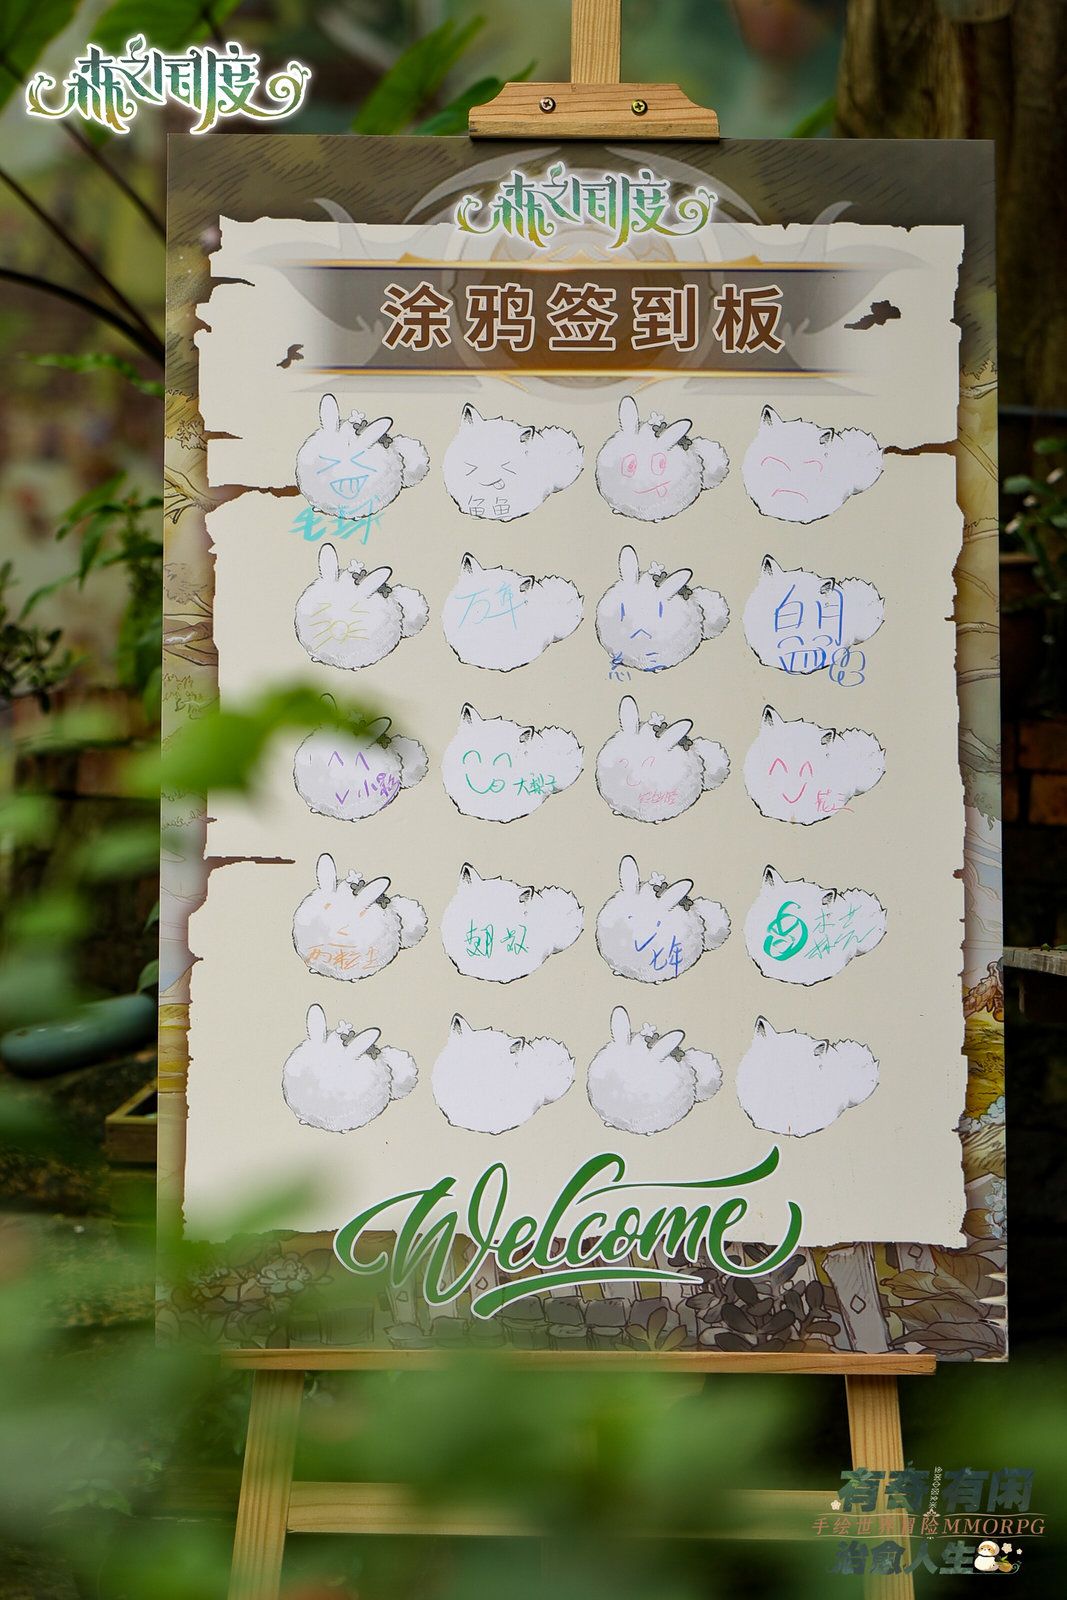 森之国度
森之国度
涂鸦签到板
毛球
鱼鱼
万年
白月
小影
大梨子
花三
七年
Welcome
有奇 有闲
手绘世界冒险MMORPG
治愈人生